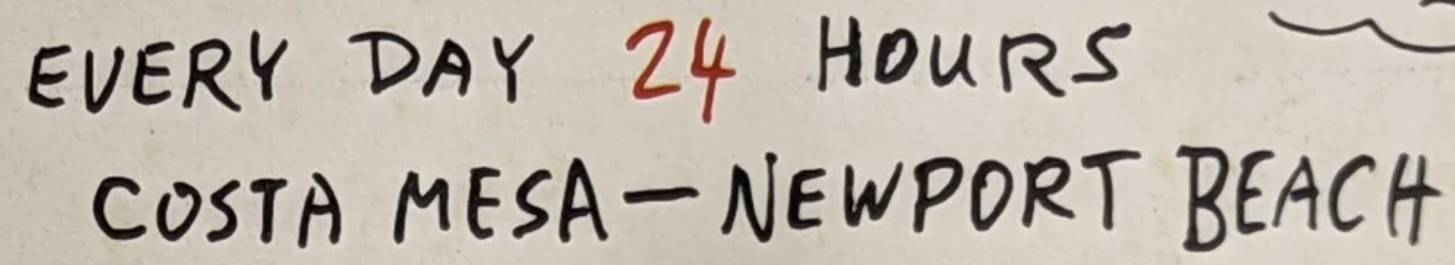 EVERY DAY 24 HOURS
COSTA MESA—NEWPORT BEACH